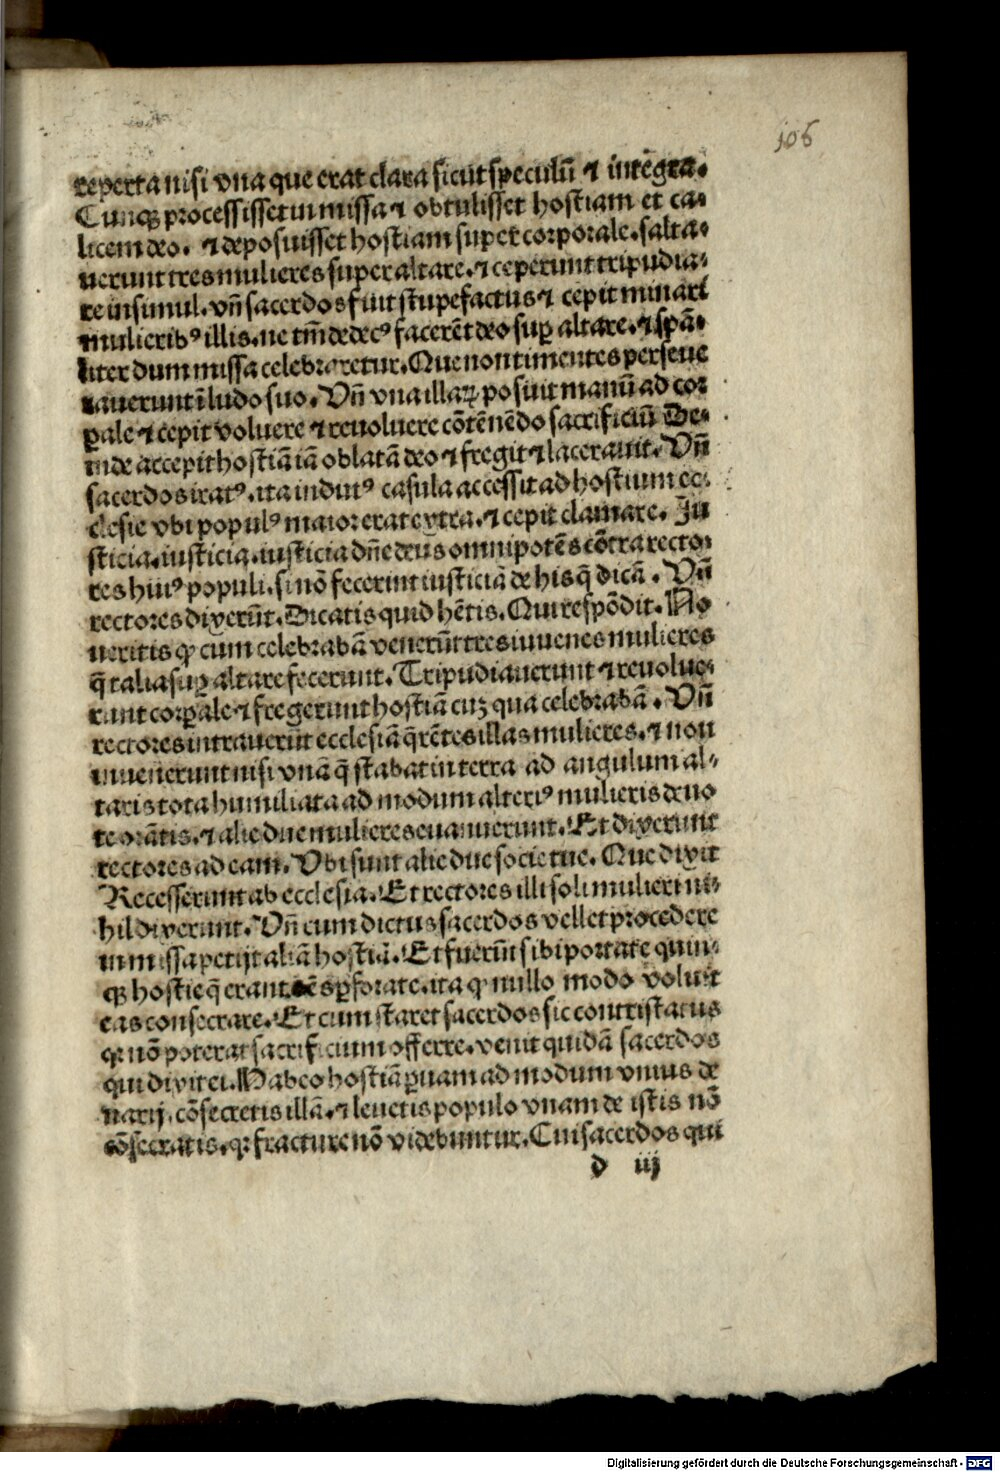 106
reperta nisi vna que erat clara sicut speculū ⁊ intēgra.
Cunqꝫ processisset in missa ⁊ obtulisset hostiam et ca-
licem deo. ⁊ deposuisset hostiam super corporale. salta-
uerunt tres mulieres super altare. ⁊ ceperunt tripudia-
re insimul. vn̄ sacerdos fuit stupefactus ⁊ cepit minari
mulieribꝰ illis. ne tm̄ dedecꝰ facerēt deo suꝑ altare. ⁊ spā-
liter dum missa celebraretur. Que non timentes perseue
rauerunt ī ludo suo. Vn̄ vna illaꝝ posuit manū ad cor
ꝑale ⁊ cepit voluere ⁊ reuoluere cōtēnēdo sacrificiū De-
inde accepit hostiā iā oblatā deo ⁊ fregit ⁊ lacerauit. Vn̄
sacerdos iratꝰ. ita indutꝰ casula accessit ad hostium ec-
clesie vbi populꝰ maior erat extra. ⁊ cepit clamare. Ju
sticia. iusticia. iusticia dn̄e deus omnipotēs cōtra recto-
res huiꝰ populi. si nō fecerint iusticiā de his q̄ dicā. Vn̄
rectores dixerūt. Dicatis quid hētis. Qui respōdit. No
ueritis ꝙ cum celebrabā venerūt tres iuuenes mulieres
q̄ talia suꝑ altare fecerunt. Tripudiauerunt ⁊ reuolue-
runt corꝑale ⁊ fregerunt hostiā cuꝫ qua celebrabā. Vn̄
rectores intrauerūt ecclesiā q̄rētes illas mulieres. ⁊ non
inuenerunt nisi vnā q̄ stabat in terra ad angulum al-
taris tota humiliata ad modum alteriꝰ mulieris deuo
te orātis. ⁊ alie due mulieres euanuerunt. Et dixerunt
rectores ad eam. Vbi sunt alie due socie tue. Que dixit
Recesserunt ab ecclesia. Et rectores illi soli mulieri ni-
hil dixerunt. Vn̄ cum dictus sacerdos vellet procedere
in missa petijt aliā hostiā. Et fuerūt sibi portate quin-
qꝫ hostie q̄ erant oēs ꝑforate. ita ꝙ nullo modo voluit
eas consecrare. Et cum staret sacerdos sic contristatus
qꝛ nō poterat sacrificium offerre. venit quidā sacerdos
qui dixit ei. Habeo hostiā ꝑuam ad modum vnius de
narij. cōsecretis illā. ⁊ leuetis populo vnam de istis nō
cōsecratis. qꝛ fracture nō videbuntur. Cui sacerdos qui
d iij
Digitalisierung gefördert durch die Deutsche Forschungsgemeinschaft - DFG